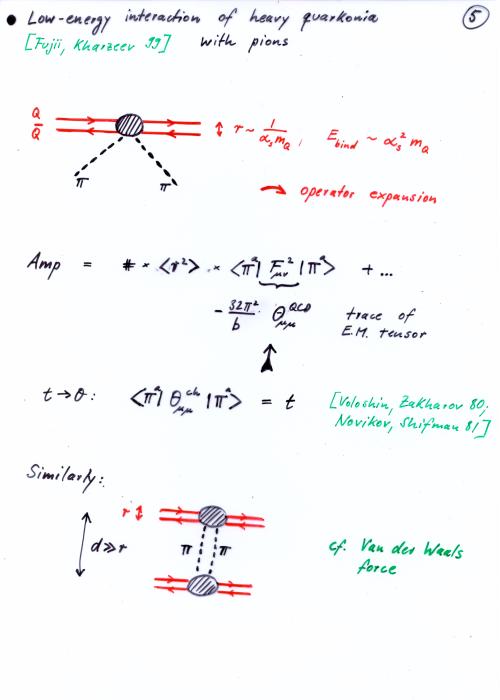 • Low-energy interaction of heavy quarkonia ⑤
[Fujii, Kharzeev 99] with pions
Q
Q̅
r ~ 1/(αₛ m_Q), E_bind ~ αₛ² m_Q
π π
→ operator expansion
Amp = # · <r²> · <πᵃ| F²_μν |πᵃ> + ...
- 32π²/b θ^QCD_μμ trace of
E.M. tensor
t→0: <πᵃ| θ^ch_μμ |πᵃ> = t [Voloshin, Zakharov 80;
Novikov, Shifman 81]
Similarly:
r
d≫r π π cf. Van der Waals
force